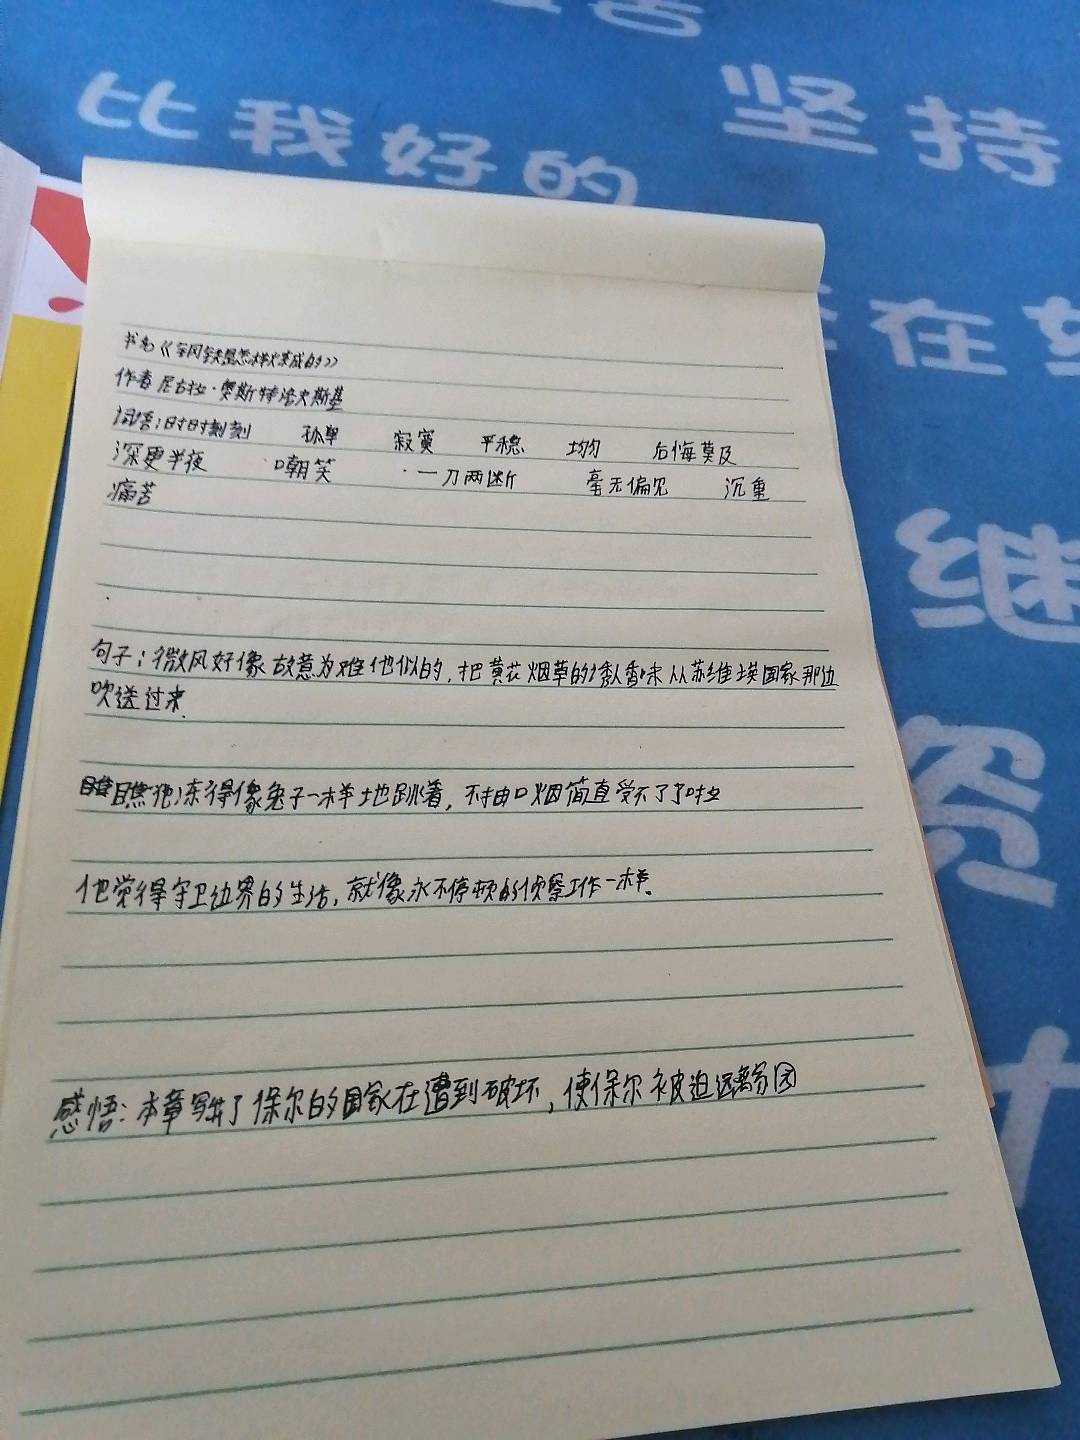 比我好的
坚持
在
继
资
书名《钢铁是怎样炼成的》
作者 尼古拉·奥斯特洛夫斯基
词语：时时刻刻 孤单 寂寞 平稳 均匀 后悔莫及
深更半夜 嘲笑 一刀两断 毫无偏见 沉重
痛苦
句子：微风好像故意为难他似的，把黄花烟草的香味从苏维埃国家那边
吹送过来
瞧他冻得像兔子一样地跳着，不抽口烟简直受不了了啦
他觉得守卫边界的生活，就像永不停顿的侦察工作一样.
感悟：本章写讲了保尔的国家在遭到破坏，使保尔被迫远离家园